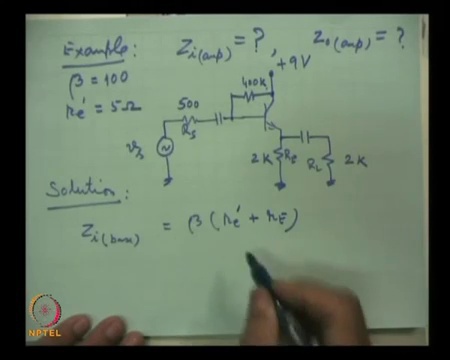 Example: Zi(amp) = ?, Zo(amp) = ?
β = 100
re' = 5Ω
+9V
400K
500
RS
vs
2K RE
RL 2K
Solution:
Zi(base) = β(re' + rE)
NPTEL